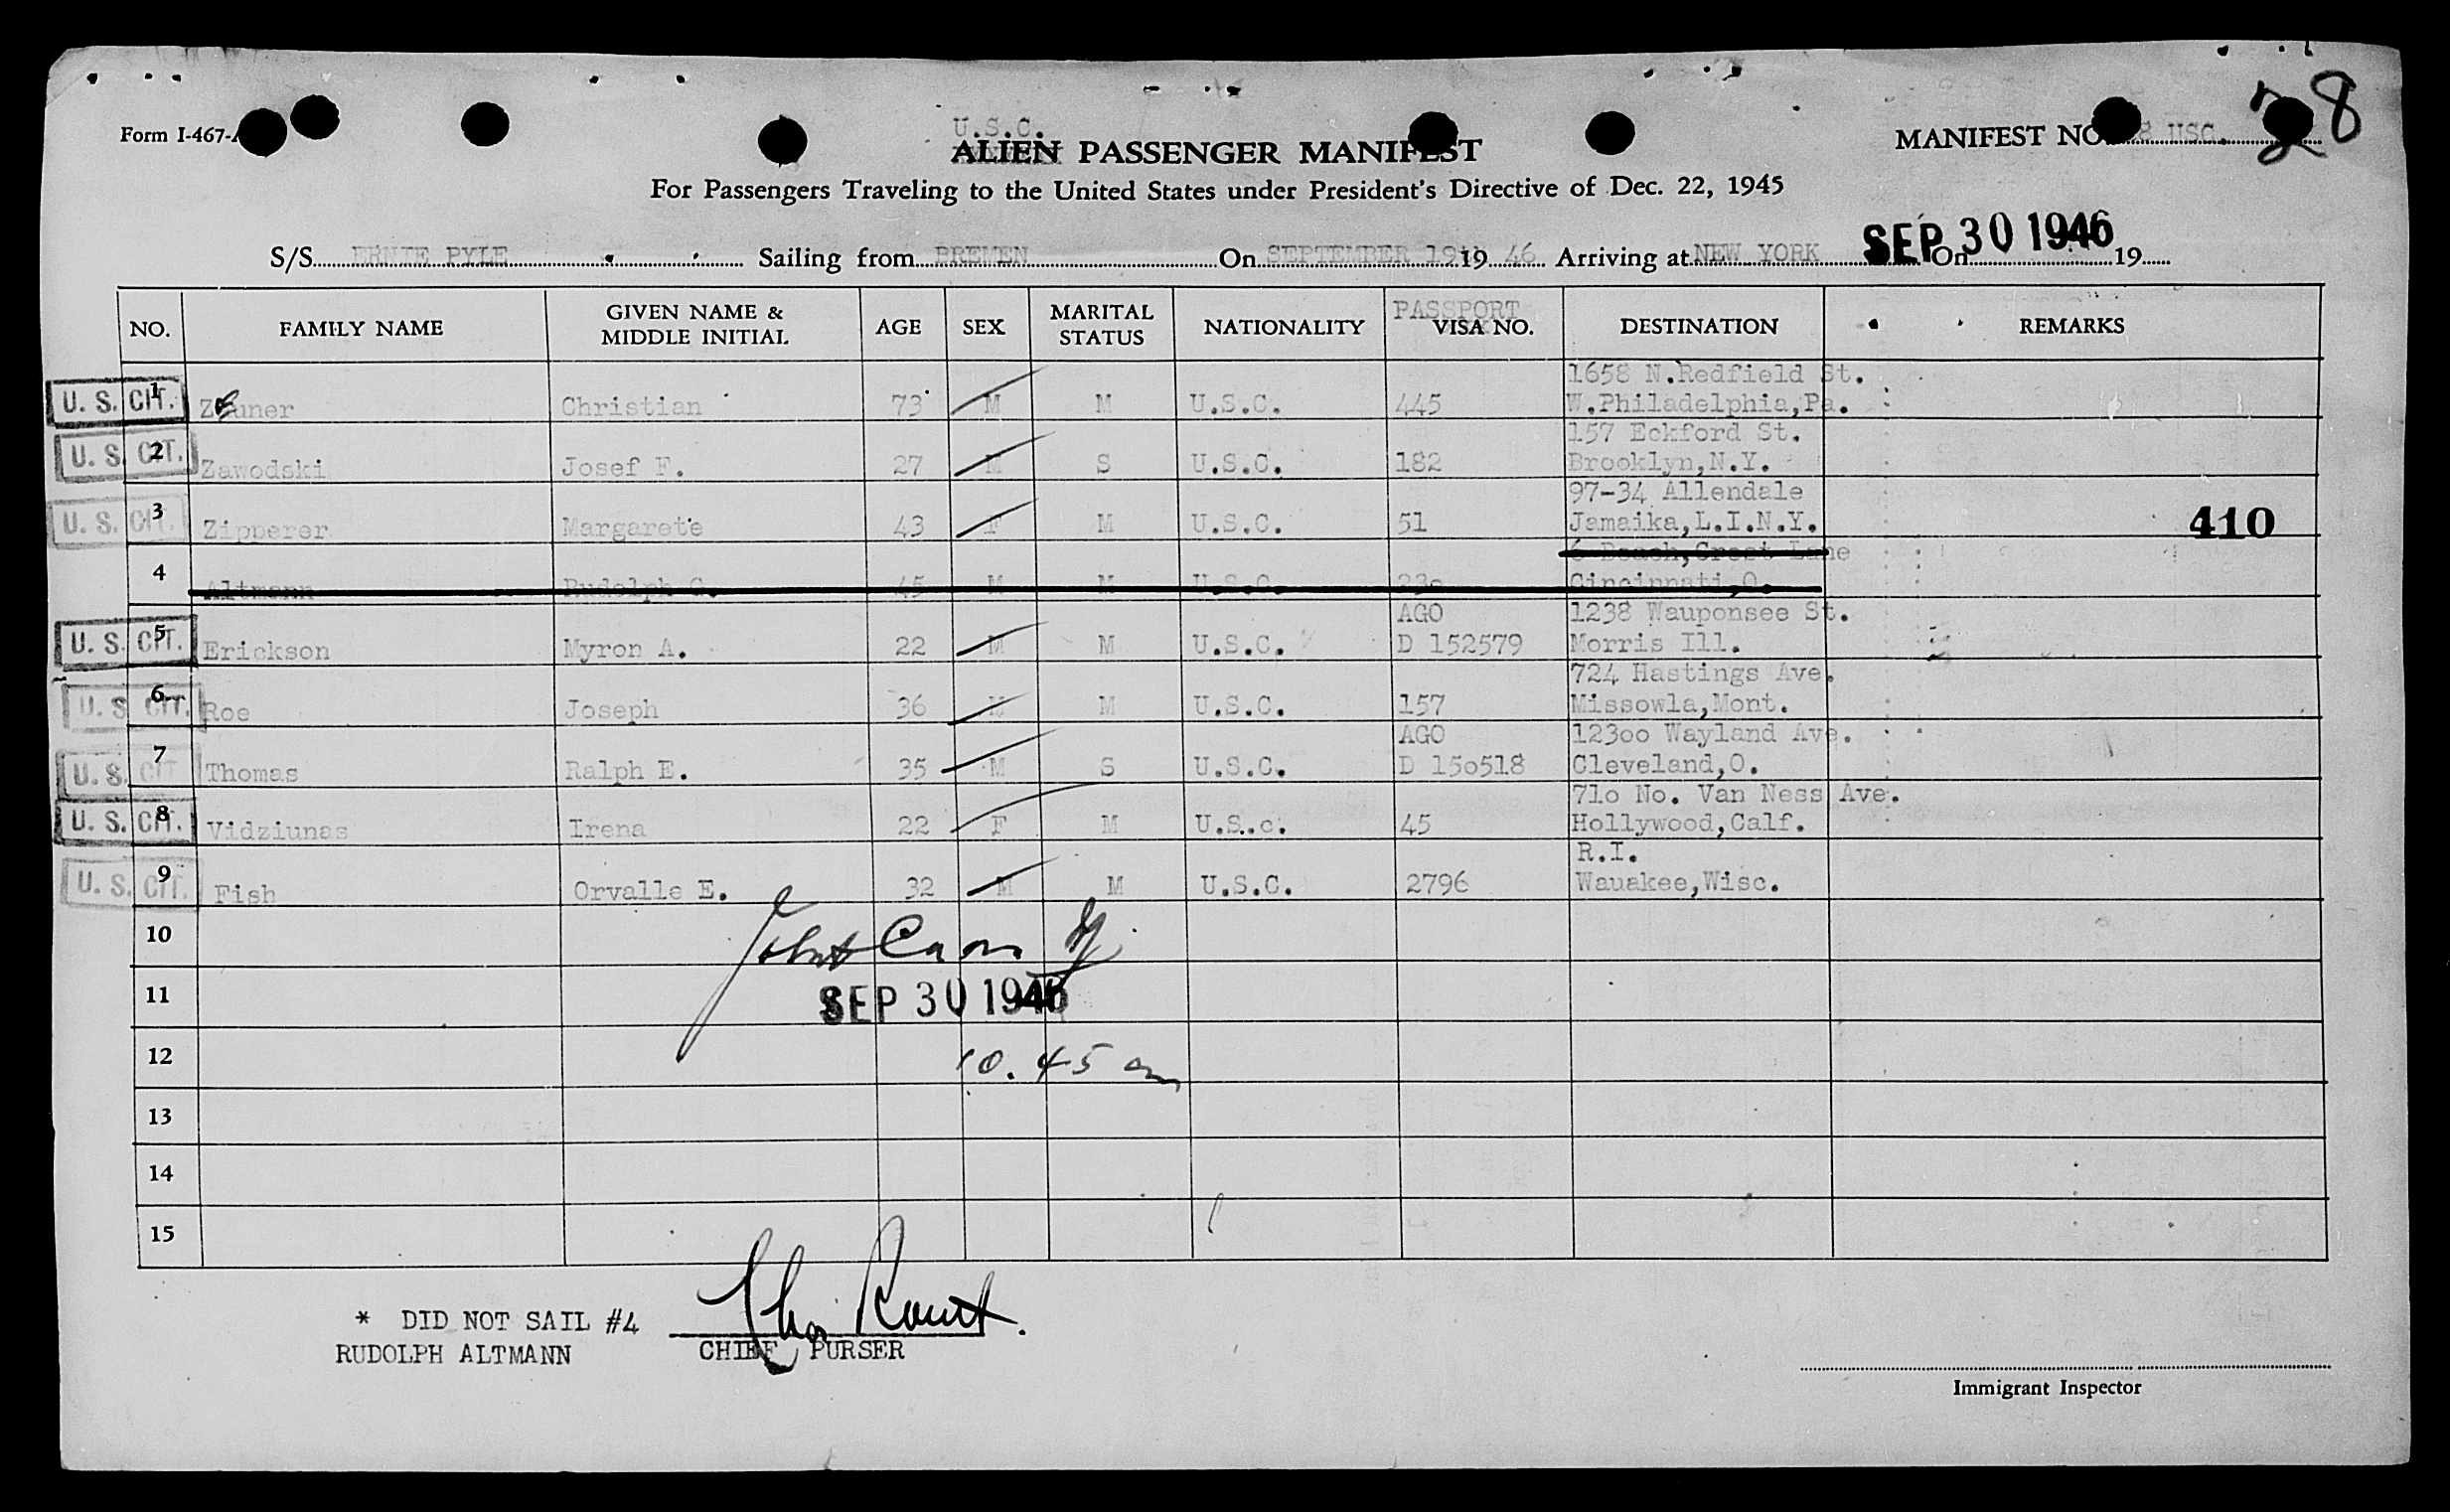 Form I-467-
28
U.S.C.
ALIEN PASSENGER MANIFEST
MANIFEST NO. 8 USC.
For Passengers Traveling to the United States under President's Directive of Dec. 22, 1945
S/S ERNIE PYLE Sailing from BREMEN On SEPTEMBER 19th 19 46 Arriving at NEW YORK On SEP 30 1946 19
NO. FAMILY NAME GIVEN NAME & MIDDLE INITIAL AGE SEX MARITAL STATUS NATIONALITY PASSPORT VISA NO. DESTINATION REMARKS
1658 N.Redfield St.
U. S. CIT. 1 Zeuner Christian 73 M M U.S.C. 445 W.Philadelphia,Pa.
157 Eckford St.
U. S. CIT. 2 Zawodski Josef F. 27 M S U.S.C. 182 Brooklyn,N.Y.
97-34 Allendale
U. S. CIT. 3 Zipperer Margarete 43 F M U.S.C. 51 Jamaika,L.I.N.Y. 410
6 Beach,Crest Lane
4 Altmann Rudolph G. 45 M M U.S.C. 23o Cincinnati,O.
AGO 1238 Wauponsee St.
U. S. CIT. 5 Erickson Myron A. 22 M M U.S.C. D 152579 Morris Ill.
724 Hastings Ave.
U. S. CIT. 6 Roe Joseph 36 M M U.S.C. 157 Missowla,Mont.
AGO 123oo Wayland Ave.
U. S. CIT 7 Thomas Ralph E. 35 M S U.S.C. D 15o518 Cleveland,O.
71o No. Van Ness Ave.
U. S. CIT. 8 Vidziunas Irena 22 F M U.S.c. 45 Hollywood,Calf.
R.I.
U. S. CIT. 9 Fish Orvalle E. 32 M M U.S.C. 2796 Wauakee,Wisc.
10
11 SEP 30 1946
12 10.45 am
13
14
15
* DID NOT SAIL #4
RUDOLPH ALTMANN
CHIEF PURSER
Immigrant Inspector